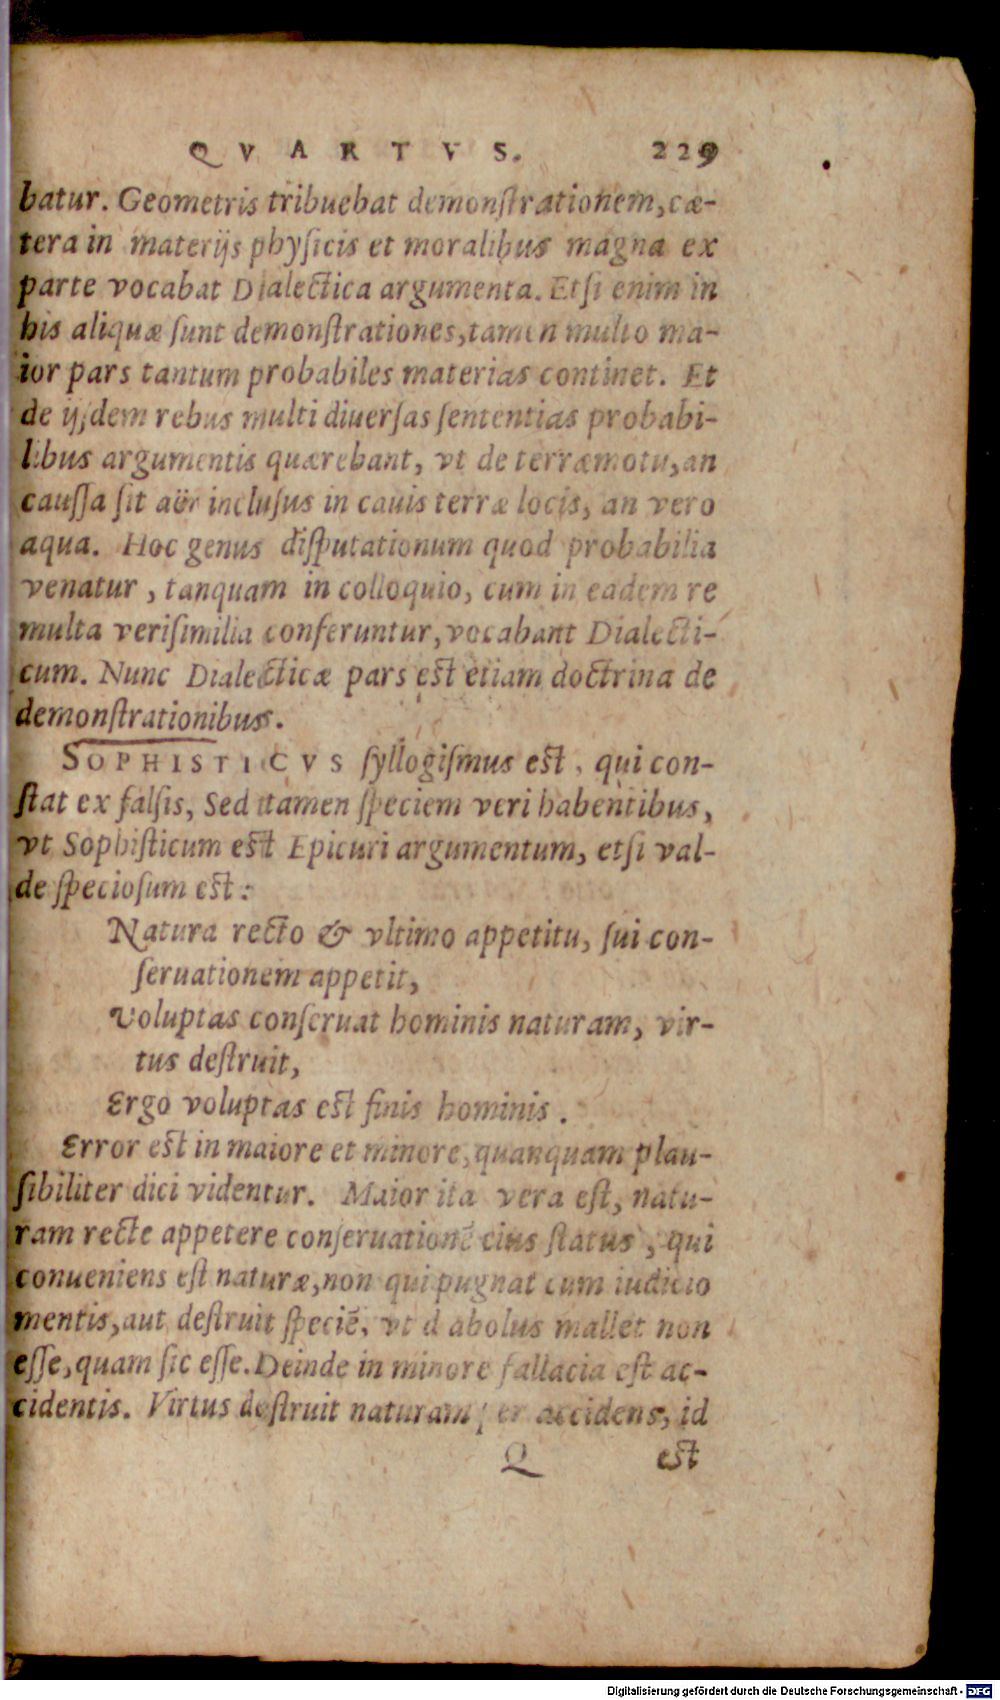 QVARTVS. 229
batur. Geometris tribuebat demonſtrationem, cæ-
tera in materijs phyſicis et moralibus magna ex
parte vocabat Dialectica argumenta. Etſi enim in
his aliquæ ſunt demonſtrationes, tamen multo ma-
ior pars tantum probabiles materias continet. Et
de ijſdem rebus multi diuerſas ſententias probabi-
libus argumentis quærebant, vt de terræmotu, an
cauſſa ſit aër incluſus in cauis terræ locis, an vero
aqua. Hoc genus diſputationum quod probabilia
venatur, tanquam in colloquio, cum in eadem re
multa veriſimilia conferuntur, vocabant Dialecti-
cum. Nunc Dialecticæ pars eſt etiam doctrina de
demonſtrationibus.
SOPHISTICVS ſyllogiſmus eſt, qui con-
ſtat ex falſis, Sed tamen ſpeciem veri habentibus,
vt Sophiſticum eſt Epicuri argumentum, etſi val-
de ſpecioſum eſt:
Natura recto & vltimo appetitu, ſui con-
ſeruationem appetit,
Voluptas conſeruat hominis naturam, vir-
tus deſtruit,
Ergo voluptas eſt finis hominis.
Error eſt in maiore et minore, quanquam plau-
ſibiliter dici videntur. Maior ita vera eſt, natu-
ram recte appetere conſeruationē eius ſtatus, qui
conueniens eſt naturæ, non qui pugnat cum iudicio
mentis, aut deſtruit ſpeciē, vt diabolus mallet non
eſſe, quam ſic eſſe. Deinde in minore fallacia eſt ac-
cidentis. Virtus deſtruit naturam per accidens, id
Q est
Digitalisierung gefördert durch die Deutsche Forschungsgemeinschaft - DFG